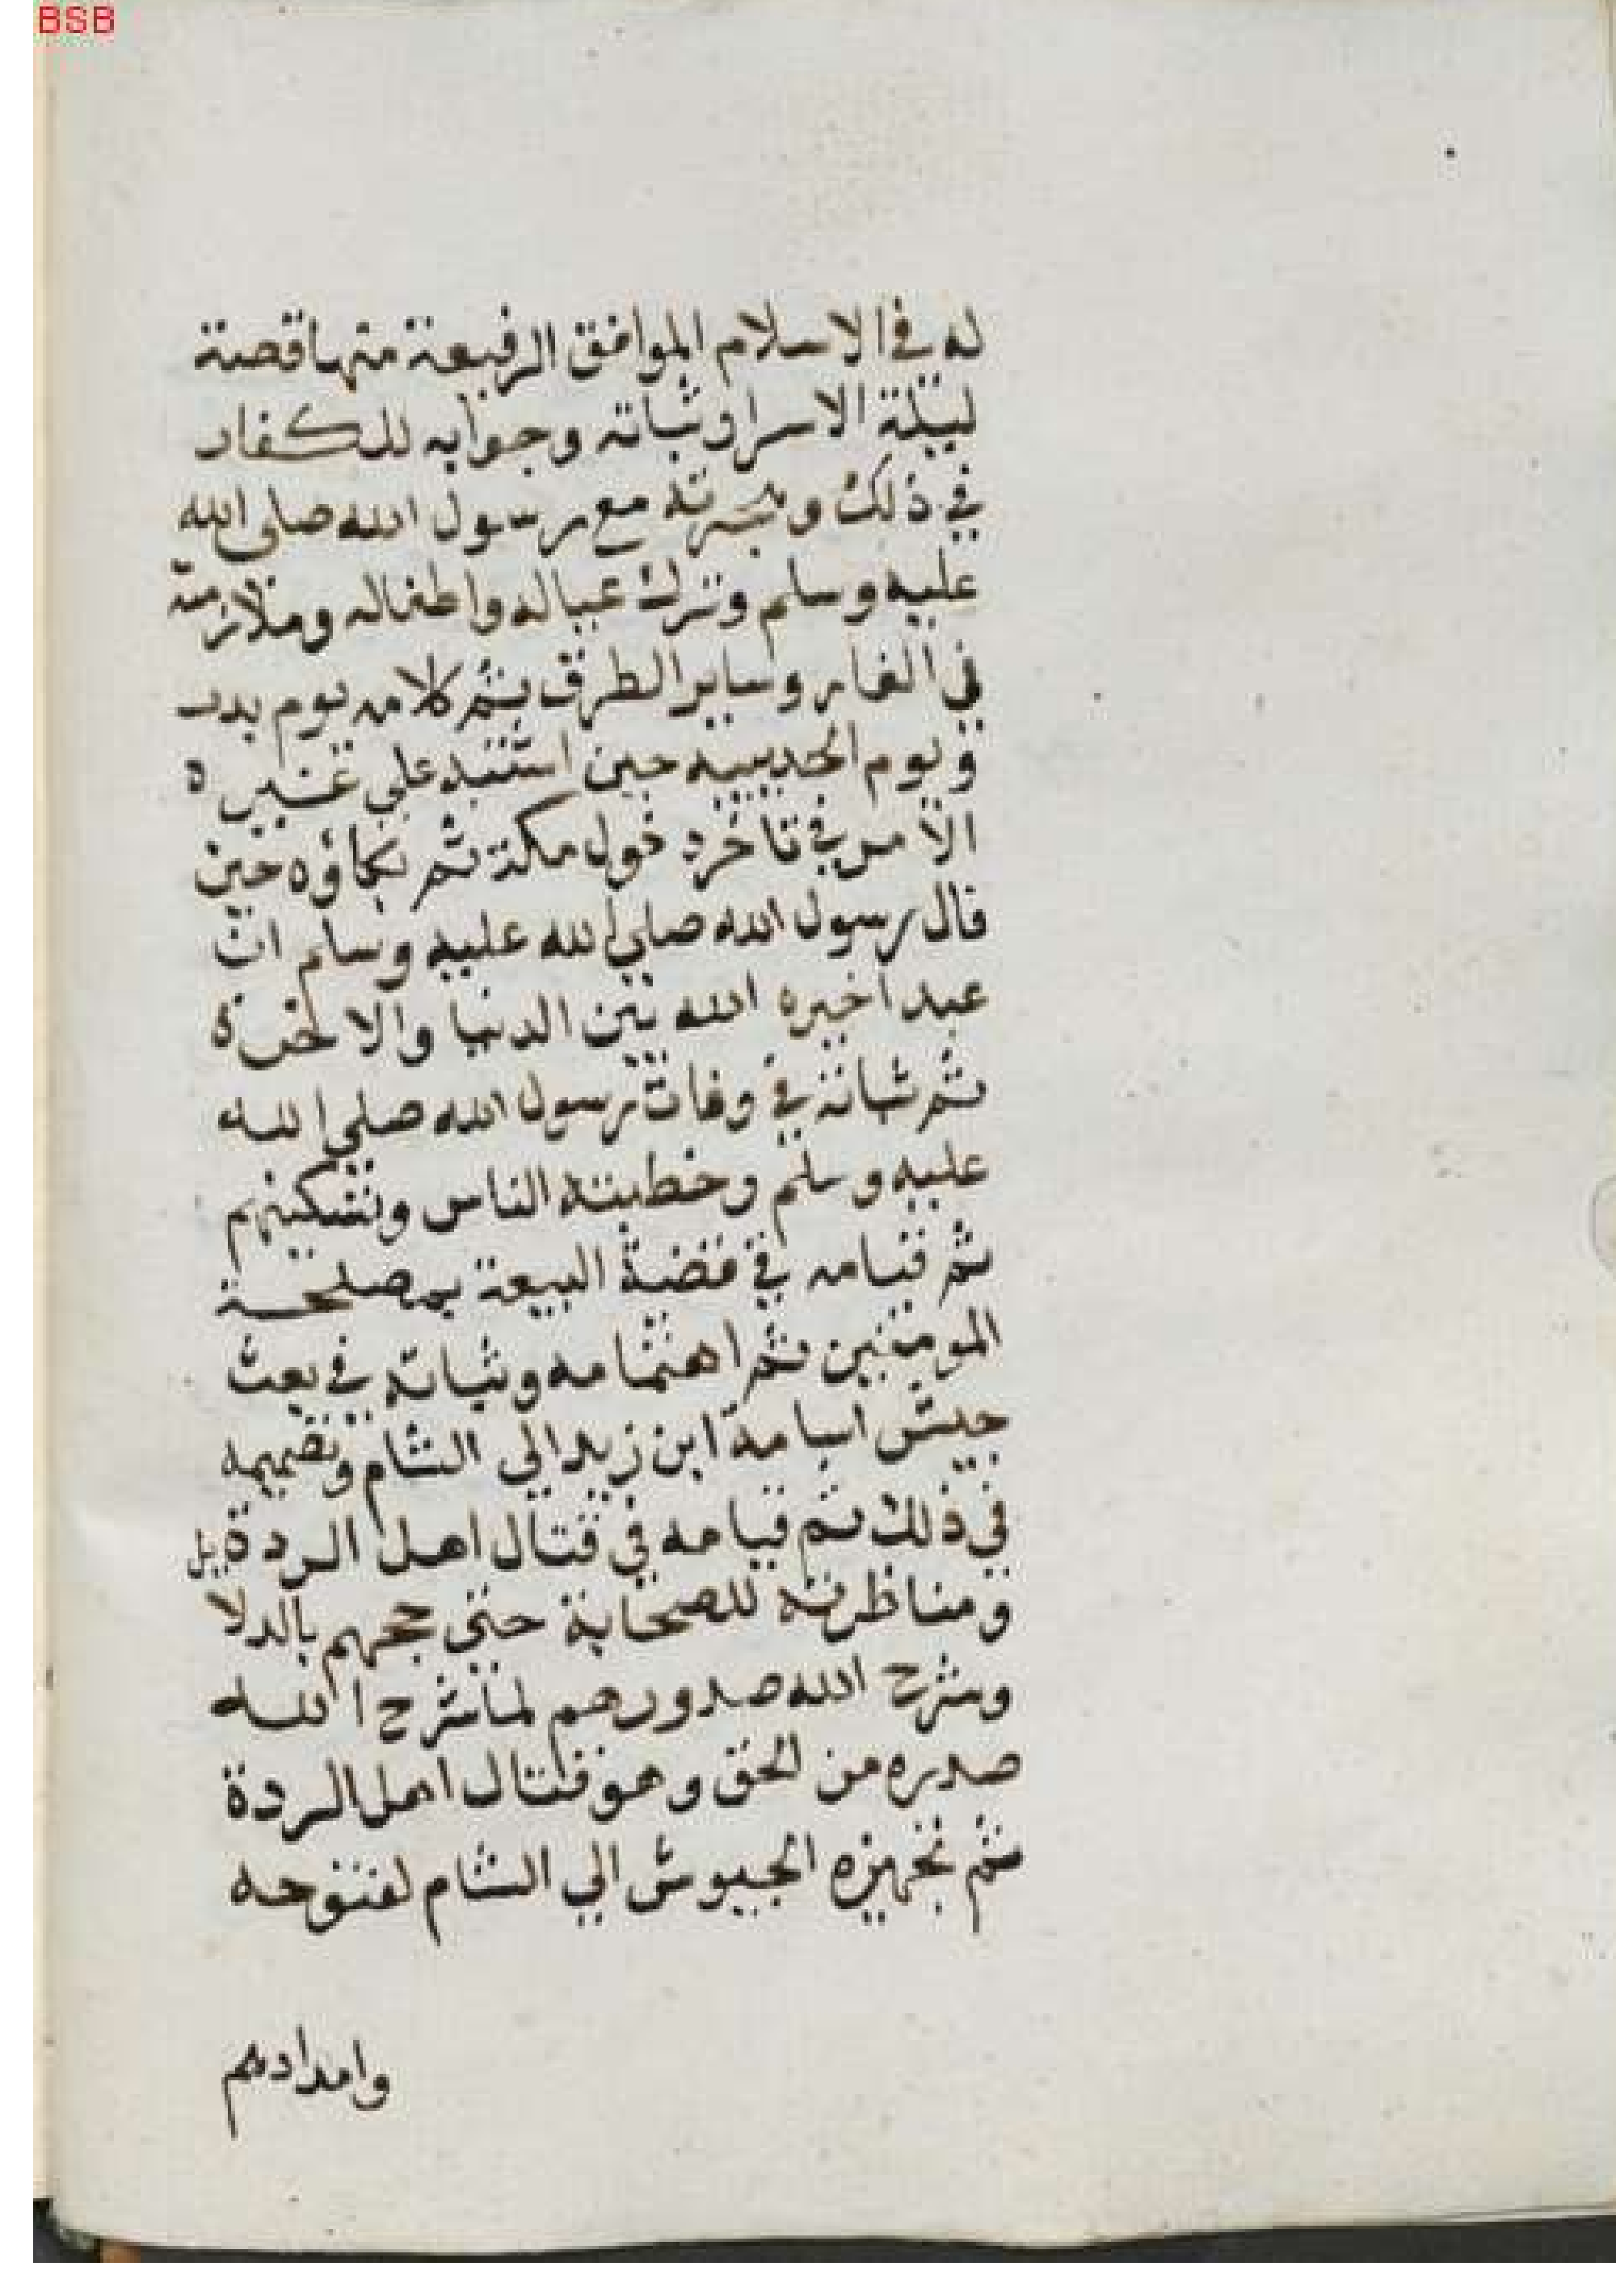 BSB
له في الاسلام الموافق الرفيعة منها قصة
ليلة الاسرا وثباته وجوابه للكفار
في ذلك وهجرته مع رسول الله صلي الله
عليه وسلم وترك عياله واطفاله وملازمته
في الغار وساير الطرق ثم كلامه يوم بدر
ويوم الحديبيه حين استبد علي غيره
الامر في تاخر دخول مكة ثم بكاؤه حين
قال رسول الله صلي الله عليه وسلم ان
عبدا خيره الله بين الدنيا والاخرة
ثم ثباته في وفات رسول الله صلي الله
عليه وسلم وخطبته الناس وتسكينهم
ثم قيامه في قضية البيعة بمصلحة
المومنين ثم اهتمامه وثباته في بعث
جيش اسامة ابن زيد الي الشام وتصميمه
في ذلك ثم قيامه في قتال اهل الردة
ومناظرته للصحابة حتي حجهم بالدلايل
وشرح الله صدورهم لما شرح الله
صدره من الحق وهو قتال اهل الردة
ثم تجهيزه الجيوش الي الشام لفتوحه
وامدادهم